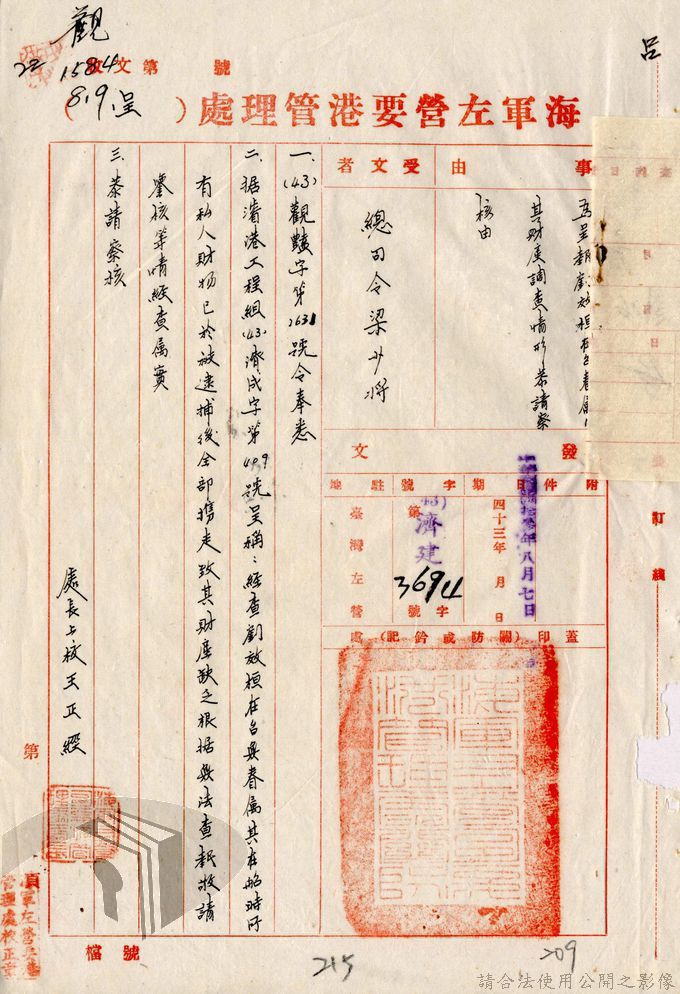 觀
呂
號 第文收
22 1584
(8.9.呈)
海軍左營要港管理處
事由
為呈報劉放桓在台眷屬及
其財產調查情形恭請察
核由
受文者
總司令梁少將
發文
附件
日期
四十三年 月 日
八月七日
字號
濟建
第
3694
字號
駐地
臺灣左營
蓋印(關防或鈐記)處
一、(43)觀豔字第2631號令奉悉
二、据濬港工程組(43)濟成字第409號呈稱:經查劉放桓在台無眷屬其在船時所
有私人財物已於被逮捕後全部携走致其財產缺乏根据無法查報敬請
鑒核等情經查属實
三、恭請察核
處長上校王正經
第
檔號
訂線
215
209
請合法使用公開之影像